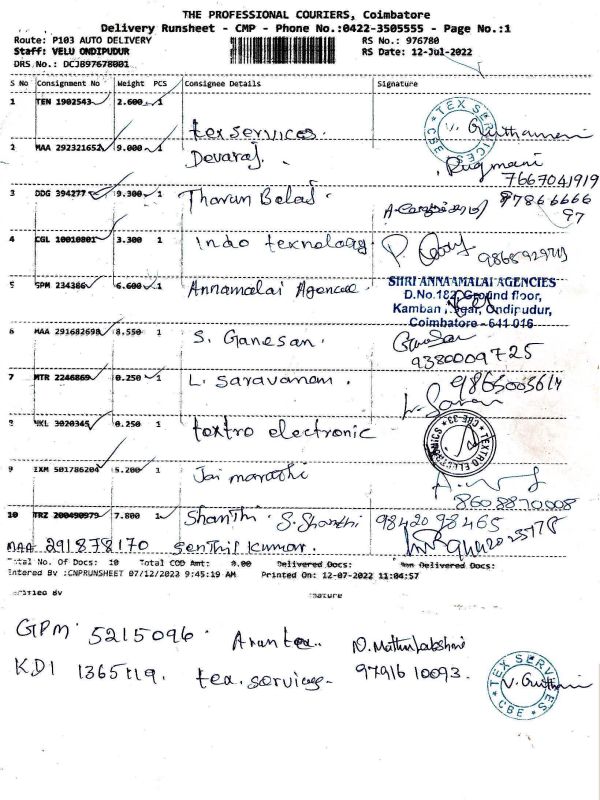 THE PROFESSIONAL COURIERS, Coimbatore
Delivery Runsheet - CMP - Phone No.:0422-3505555 - Page No.:1
Route: P103 AUTO DELIVERY RS No.: 976780
Staff: VELU ONDIPUDUR RS Date: 12-Jul-2022
DRS No.: DCJB97678001
S No Consignment No Weight PCS Consignee Details Signature
1 TEN 1902543 2.600 1 tex services. TEX SERVICES CBE
2 MAA 292321652 9.000 1 Devaraj. Rugmani 7667041919
3 DDG 394277 9.300 1 Tharun Balaji 97866666 97
4 CGL 10010801 3.300 1 Indo texnology
5 GPM 234386 6.600 1 Annamalai Agencee. SHRI ANNAAMALAI AGENCIES
D.No.182, Ground floor,
Kamban Nagar, Ondipudur,
Coimbatore - 641 016
6 MAA 291682698 8.550 1 S. Ganesan. 9380009725
7 MTR 2246869 0.250 1 L. Saravanan.
8 NKL 3020345 0.250 1 textro electronic TEXTRO ELECTRONICS CBE-33
9 IXM 501786204 5.200 1 Jai marathi 8608870008
10 TRZ 200490979 7.800 1 Shanthi. S. Shanthi 9842098465
MAA 291878170 Senthil kumar.
Total No. Of Docs: 10 Total COD Amt: 0.00 Delivered Docs: Non Delivered Docs:
Entered By :CNPRUNSHEET 07/12/2022 9:45:19 AM Printed On: 12-07-2022 11:04:57
Verified By Signature
GPM 5215096.
KDI tex. service. 97916 10093. TEX SERVICES CBE